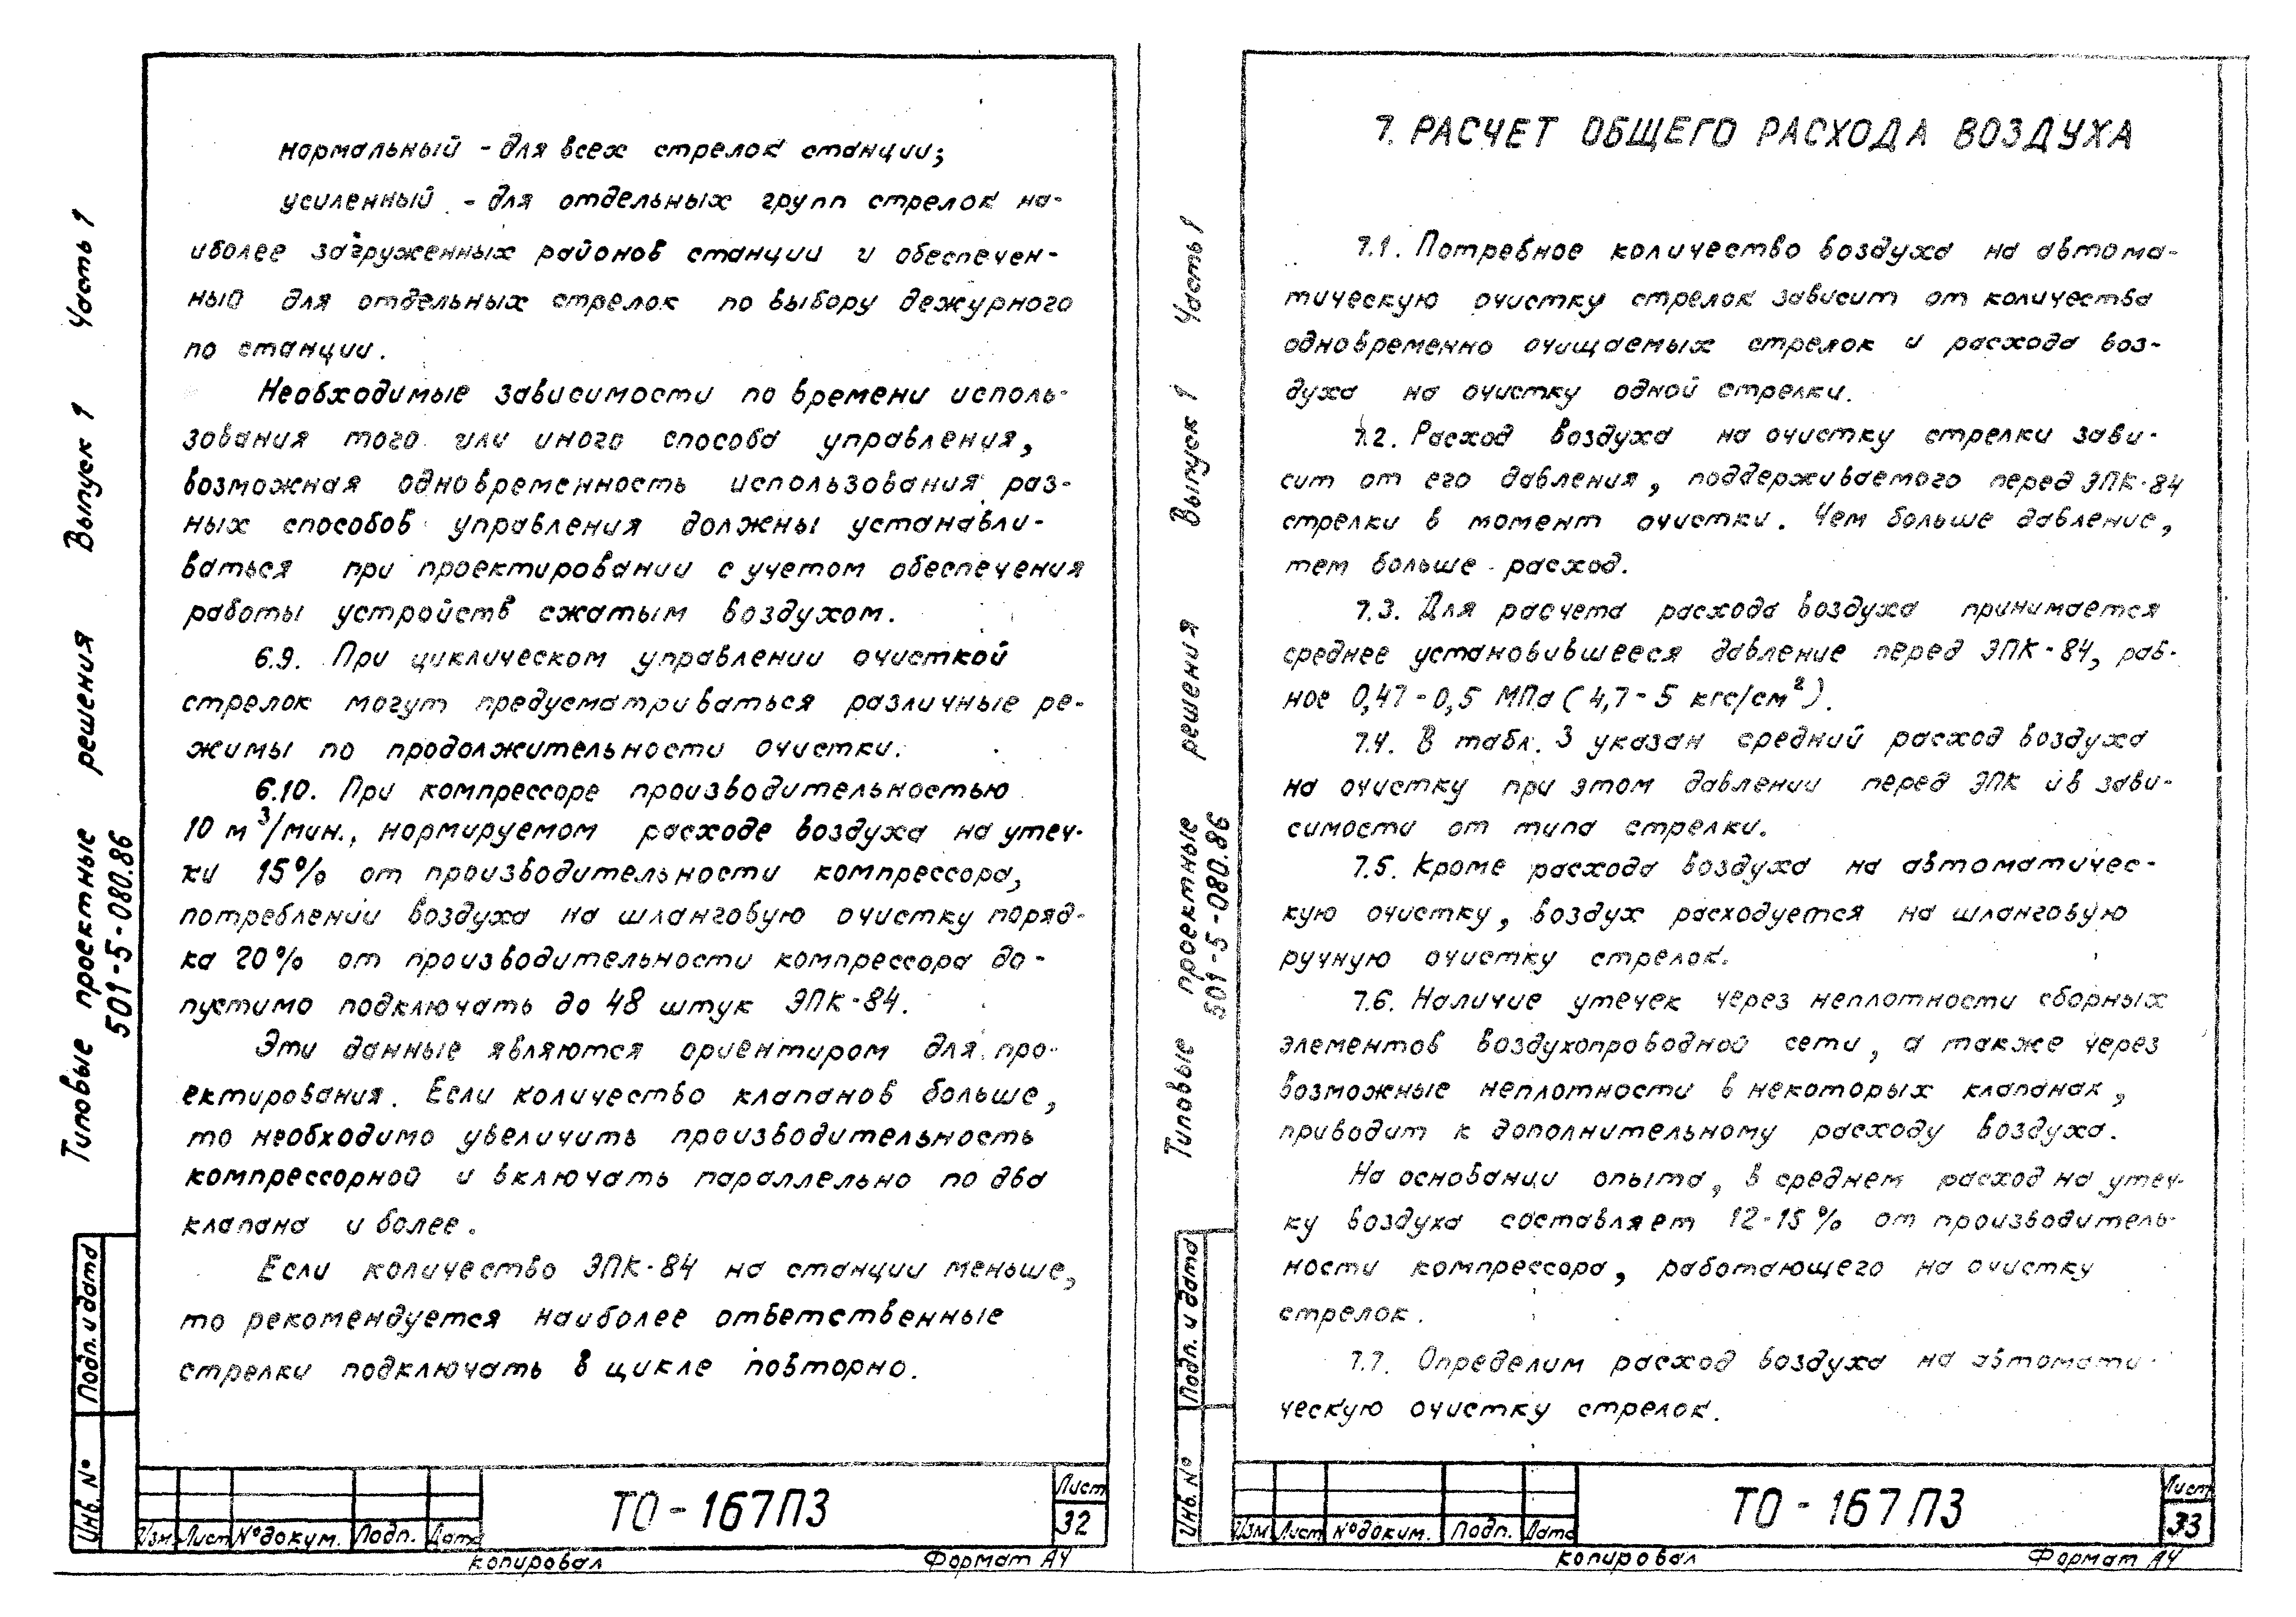 нормальный - для всех стрелок станции;
усиленный - для отдельных групп стрелок на-
иболее загруженных районов станции и обеспечен-
ный для отдельных стрелок по выбору дежурного
по станции.
Необходимые зависимости по времени исполь-
зования того или иного способа управления,
возможная одновременность использования раз-
ных способов управления должны устанавли-
ваться при проектировании с учетом обеспечения
работы устройств сжатым воздухом.
6.9. При циклическом управлении очисткой
стрелок могут предусматриваться различные ре-
жимы по продолжительности очистки.
6.10. При компрессоре производительностью
10 м³/мин., нормируемом расходе воздуха на утеч-
ки 15% от производительности компрессора,
потреблении воздуха на шланговую очистку поряд-
ка 20% от производительности компрессора до-
пустимо подключать до 48 штук ЭПК-84.
Эти данные являются ориентиром для про-
ектирования. Если количество клапанов больше,
то необходимо увеличить производительность
компрессорной и включать параллельно по два
клапана и более.
Если количество ЭПК-84 на станции меньше,
то рекомендуется наиболее ответственные
стрелки подключать в цикле повторно.
Типовые проектные решения Выпуск 1 Часть 1
501-5-080.86
Подп. и дата
Инв. №
Изм Лист № докум. Подп. Дата
ТО-167ПЗ
Лист
32
копировал Формат А4
7. РАСЧЕТ ОБЩЕГО РАСХОДА ВОЗДУХА
7.1. Потребное количество воздуха на автома-
тическую очистку стрелок зависит от количества
одновременно очищаемых стрелок и расхода воз-
духа на очистку одной стрелки.
7.2. Расход воздуха на очистку стрелки зави-
сит от его давления, поддерживаемого перед ЭПК-84
стрелки в момент очистки. Чем больше давление,
тем больше расход.
7.3. Для расчета расхода воздуха принимается
среднее установившееся давление перед ЭПК-84, рав-
ное 0,47-0,5 МПа (4,7-5 кгс/см²).
7.4. В табл. 3 указан средний расход воздуха
на очистку при этом давлении перед ЭПК и в зави-
симости от типа стрелки.
7.5. Кроме расхода воздуха на автоматичес-
кую очистку, воздух расходуется на шланговую
ручную очистку стрелок.
7.6. Наличие утечек через неплотности сборных
элементов воздухопроводной сети, а также через
возможные неплотности в некоторых клапанах,
приводит к дополнительному расходу воздуха.
На основании опыта, в среднем расход на утеч-
ку воздуха составляет 12-15% от производитель-
ности компрессора, работающего на очистку
стрелок.
7.7. Определим расход воздуха на автомати-
ческую очистку стрелок.
Типовые проектные решения Выпуск 1 Часть 1
501-5-080.86
Подп. и дата
Инв. №
Изм Лист № докум. Подп. Дата
ТО-167ПЗ
Лист
33
копировал Формат А4